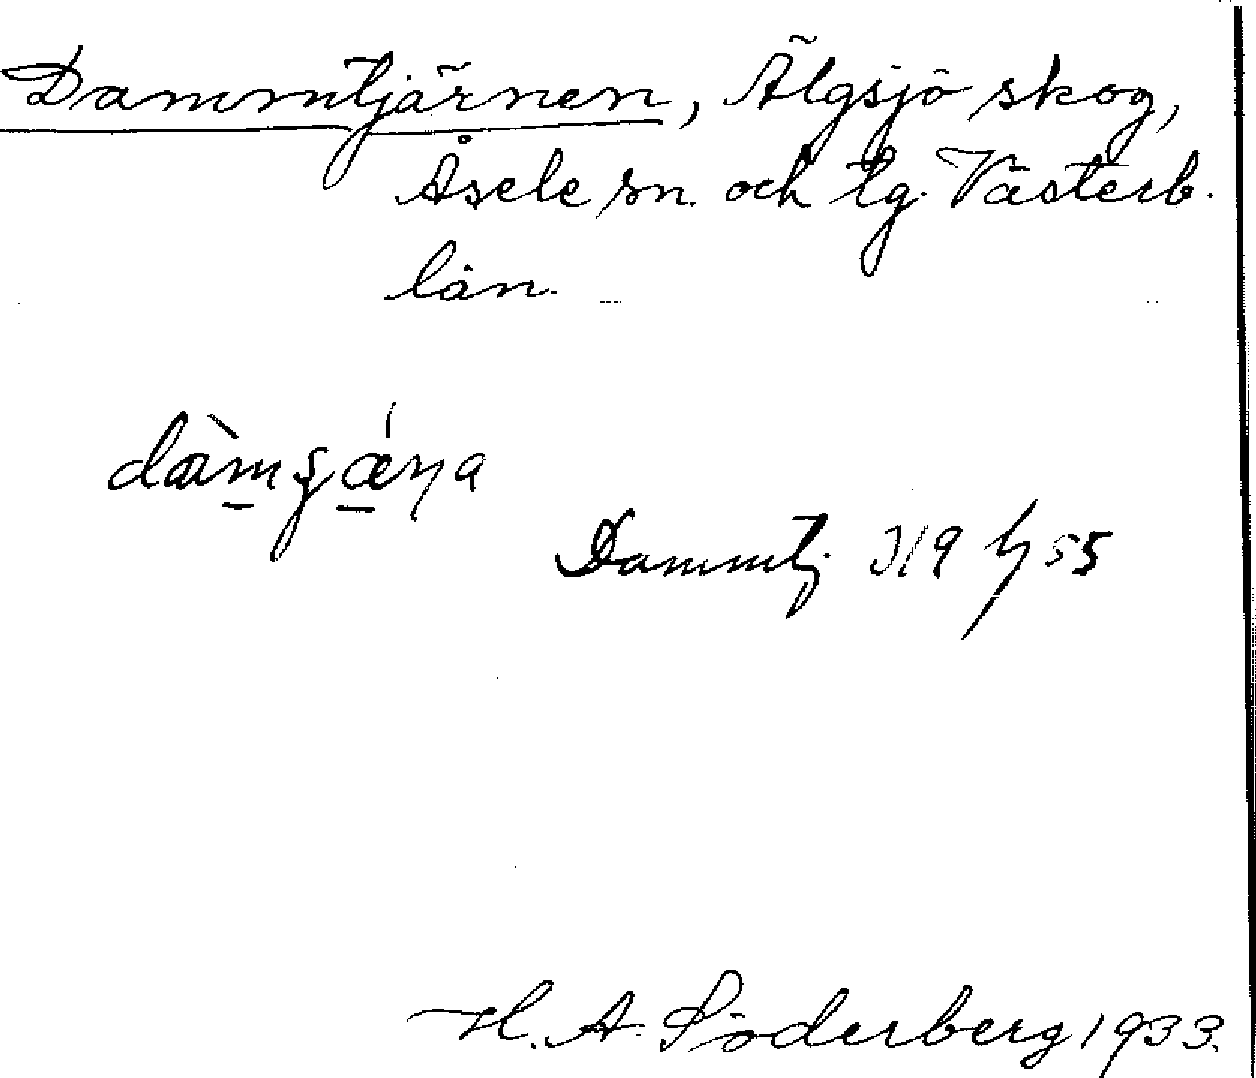 Dammtjärnen, Älgsjö skog,
Åsele sn. och lg. Västerb.
län.
Dammtj.
H. A. Söderberg 1933.